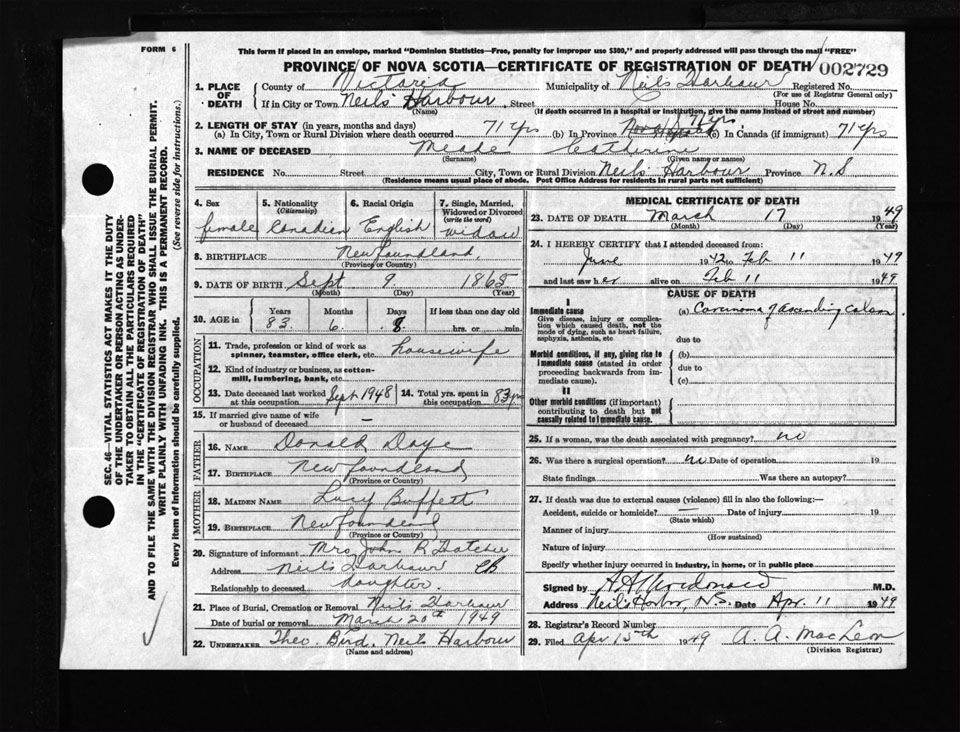 FORM 6
This form if placed in an envelope, marked "Dominion Statistics—Free, penalty for improper use $300," and properly addressed will pass through the mail "FREE"
PROVINCE OF NOVA SCOTIA—CERTIFICATE OF REGISTRATION OF DEATH
002729
1. PLACE OF DEATH
County of Victoria Municipality of Neils Harbour Registered No.
(For use of Registrar General only)
If in City or Town Neils Harbour Street House No.
(Name) (If death occurred in a hospital or institution, give the name instead of street and number)
2. LENGTH OF STAY (in years, months and days)
(a) In City, Town or Rural Division where death occurred 71 yrs (b) In Province 71 yrs (c) In Canada (if immigrant) 71 yrs
3. NAME OF DECEASED Meade Catherine
(Surname) (Given name or names)
RESIDENCE No. Street City, Town or Rural Division Neils Harbour Province N.S
(Residence means usual place of abode. Post Office Address for residents in rural parts not sufficient)
4. Sex female
5. Nationality (Citizenship) Canadian
6. Racial Origin English
7. Single, Married, Widowed or Divorced (write the word) widow
8. BIRTHPLACE Newfoundland
(Province or Country)
9. DATE OF BIRTH Sept 9 1865
(Month) (Day) (Year)
10. AGE in Years 83 Months 6 Days 8 If less than one day old hrs. or min.
OCCUPATION
11. Trade, profession or kind of work as spinner, teamster, office clerk, etc. housewife
12. Kind of industry or business, as cotton-mill, lumbering, bank, etc.
13. Date deceased last worked at this occupation Sept 1948
14. Total yrs. spent in this occupation 83 yrs
15. If married give name of wife or husband of deceased —
FATHER
16. NAME Donald Daye
17. BIRTHPLACE Newfoundland
(Province or Country)
MOTHER
18. MAIDEN NAME Lucy Buffett
19. BIRTHPLACE Newfoundland
(Province or Country)
20. Signature of informant Mrs John R Hatcher
Address Neils Harbour CB
Relationship to deceased daughter
21. Place of Burial, Cremation or Removal Neils Harbour
Date of burial or removal March 20th 1949
22. UNDERTAKER Theo. Bird, Neils Harbour
(Name and address)
MEDICAL CERTIFICATE OF DEATH
23. DATE OF DEATH March 17 1949
(Month) (Day) (Year)
24. I HEREBY CERTIFY that I attended deceased from:
June 1942 to Feb 11 1949
and last saw her alive on Feb 11 1949
CAUSE OF DEATH
I
Immediate cause (a) Carcinoma of ascending colon
Give disease, injury or complication which caused death, not the mode of dying, such as heart failure, asphyxia, asthenia, etc
due to
Morbid conditions, if any, giving rise to immediate cause (stated in order proceeding backwards from immediate cause).
(b)
due to
(c)
II
Other morbid conditions (if important) contributing to death but not causally related to immediate cause.
25. If a woman, was the death associated with pregnancy? no
26. Was there a surgical operation? no Date of operation 19
State findings Was there an autopsy?
27. If death was due to external causes (violence) fill in also the following:—
Accident, suicide or homicide? — Date of injury 19
(State which)
Manner of injury
(How sustained)
Nature of injury
Specify whether injury occurred in industry, in home, or in public place
Signed by A A Macdonald M.D.
Address Neil's Harbor, N.S. Date Apr. 11 1949
28. Registrar's Record Number
29. Filed Apr 15th 1949 A. A. MacLeon
(Division Registrar)
SEC. 46—VITAL STATISTICS ACT MAKES IT THE DUTY
OF THE UNDERTAKER OR PERSON ACTING AS UNDER-
TAKER TO OBTAIN ALL THE PARTICULARS REQUIRED
IN THE "CERTIFICATE OF REGISTRATION OF DEATH"
AND TO FILE THE SAME WITH THE DIVISION REGISTRAR WHO SHALL ISSUE THE BURIAL PERMIT.
WRITE PLAINLY WITH UNFADING INK. THIS IS A PERMANENT RECORD.
Every item of information should be carefully supplied. (See reverse side for instructions.)